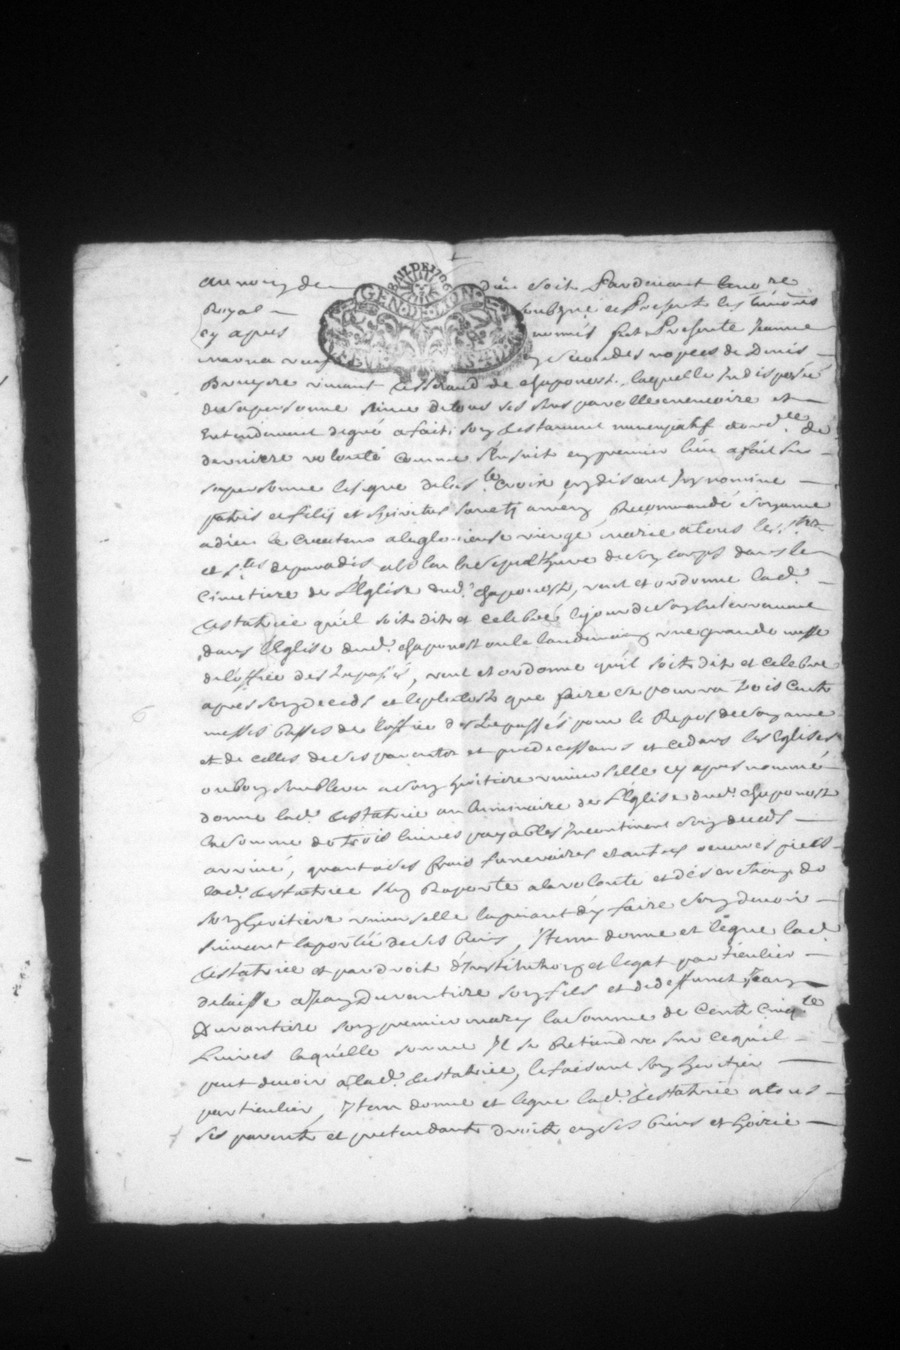 BAIL DE 1706
GEN. DE LION.
au nom de dieu soit Pardevant le no.re
Royal soubzné et Presents les tesmoins
Cy apres nommés fut Presente Jeanne
en secondes nopces de Denis
Bruyere vivant tisserand de chaponost, laquelle Indisposée
de sa personne saine de tous ses sens parolle memoire et
Entendement de gré a fait son testament nuncupatif et ord.ce de
derniere volonté comme s'ensuit en premier lieu a fait sur
sa personne le signe de la s.te Croix en disant In nomine
patris et filij et spiritus sancti amen, Recommandé son ame
a dieu le Createur a la glorieuse vierge marie a tous les s.ts
et s.tes de paradis a eslu la sepulture de son corps dans le
Cimetiere de l'Eglise dud. chaponost, veut et ordonne lad.
testatrice qu'il soit dit et celebré le jour de son Enterrement
dans l'Eglise dud. chaponost ou le landemain une grande messe
de l'office des trepassés, veut et ordonne qu'il soit dit et celebré
apres son deceds et le plutost que faire ce pourra trois cents
messes basses de l'office des trepassés pour le Repos de son ame
et de celles de ses parents et predecesseurs et ce dans les Eglises
ou bon semblera a son heritiere universelle cy apres nommé
donne lad. testatrice au luminaire de l'Eglise dud. chaponost
la somme de trois livres payables Incontinent son deceds
arrivé, quant a ses frais funeraires et autres oeuvres pies
lad. testatrice s'en Raporte a la volonté et discretion de
son heritiere universelle la priant d'y faire son devoir
suivant la portée de ses biens, Item donne et legue lad.
testatrice et par droit d'Institution et legat particulier
delaisse a Jean Durantiere son fils et de deffunct Jean
Durantiere son premier mary la somme de Cent Cinq.te
Livres laquelle somme Il se Retiendra sur ce qu'il
peut devoir a lad. testatrice, le faisant son heritier
particulier, Item donne et legue lad. testatrice a tous
ses parents et pretendants droits en ses biens et hoirie